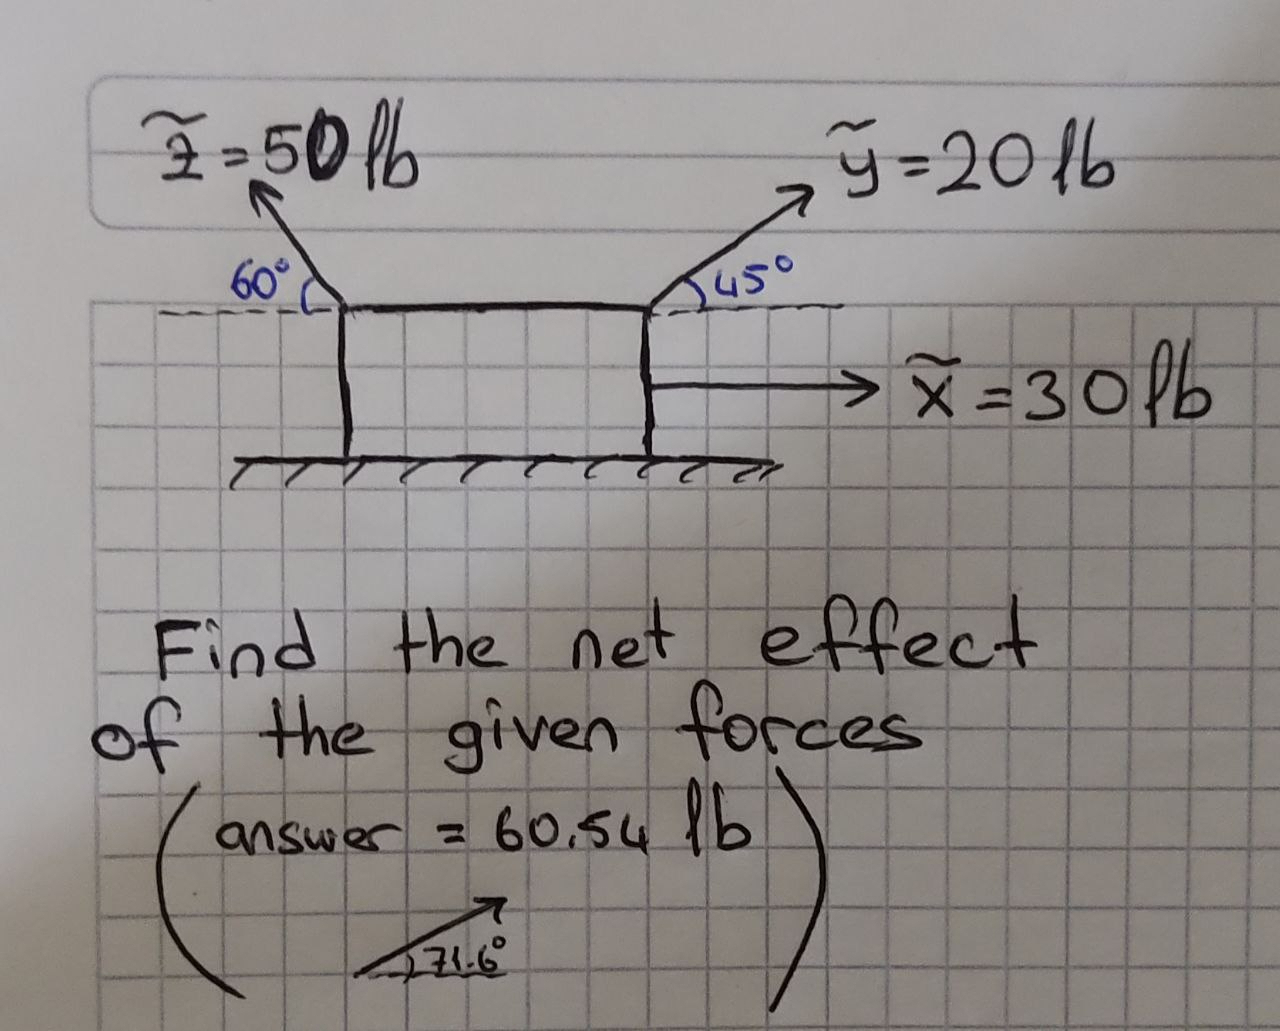 z̃ = 50 lb
ỹ = 20 lb
60°
45°
x̃ = 30 lb
Find the net effect
of the given forces
(answer = 60.54 lb)
71.6°